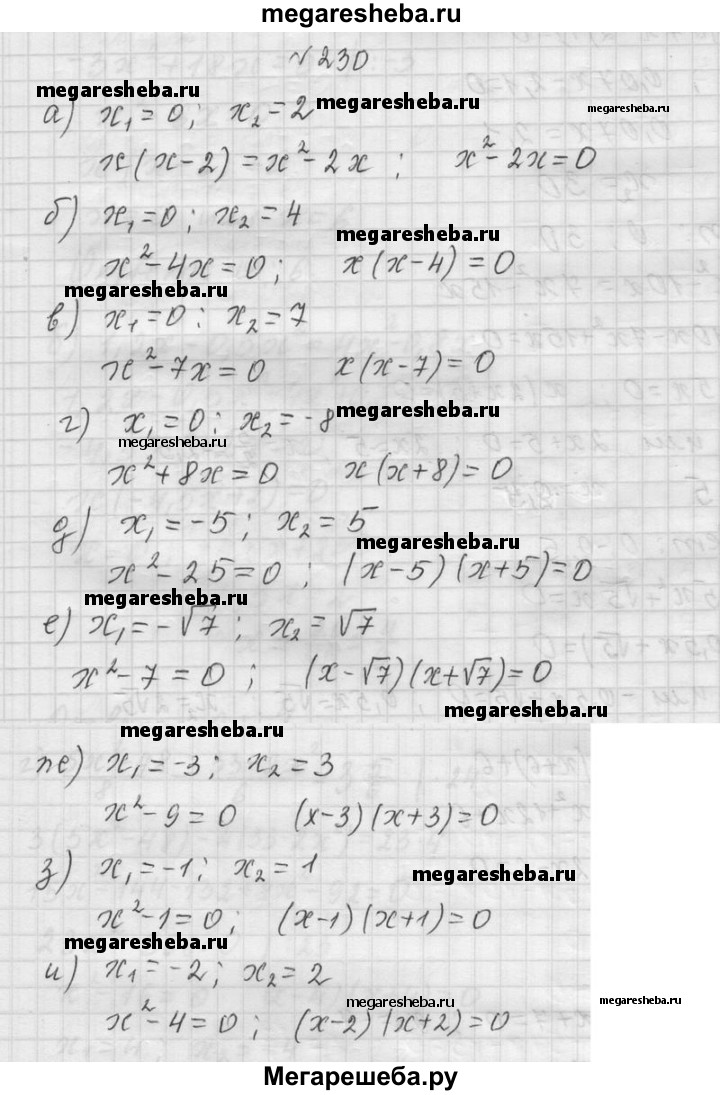 megaresheba.ru
№230
megaresheba.ru
а) x₁ = 0; x₂ = 2 megaresheba.ru megaresheba.ru
x(x-2) = x² - 2x; x² - 2x = 0
б) x₁ = 0; x₂ = 4
megaresheba.ru
x² - 4x = 0; x(x-4) = 0
megaresheba.ru
в) x₁ = 0; x₂ = 7
x² - 7x = 0 x(x-7) = 0
г) x₁ = 0; x₂ = -8 megaresheba.ru
megaresheba.ru
x² + 8x = 0 x(x+8) = 0
д) x₁ = -5; x₂ = 5
megaresheba.ru
x² - 25 = 0; (x-5)(x+5) = 0
megaresheba.ru
е) x₁ = -√7; x₂ = √7
x² - 7 = 0; (x-√7)(x+√7) = 0
megaresheba.ru
megaresheba.ru
ж) x₁ = -3; x₂ = 3
x² - 9 = 0 (x-3)(x+3) = 0
з) x₁ = -1; x₂ = 1 megaresheba.ru
x² - 1 = 0; (x-1)(x+1) = 0
megaresheba.ru
и) x₁ = -2; x₂ = 2
megaresheba.ru megaresheba.ru
x² - 4 = 0; (x-2)(x+2) = 0
Мегарешеба.ру